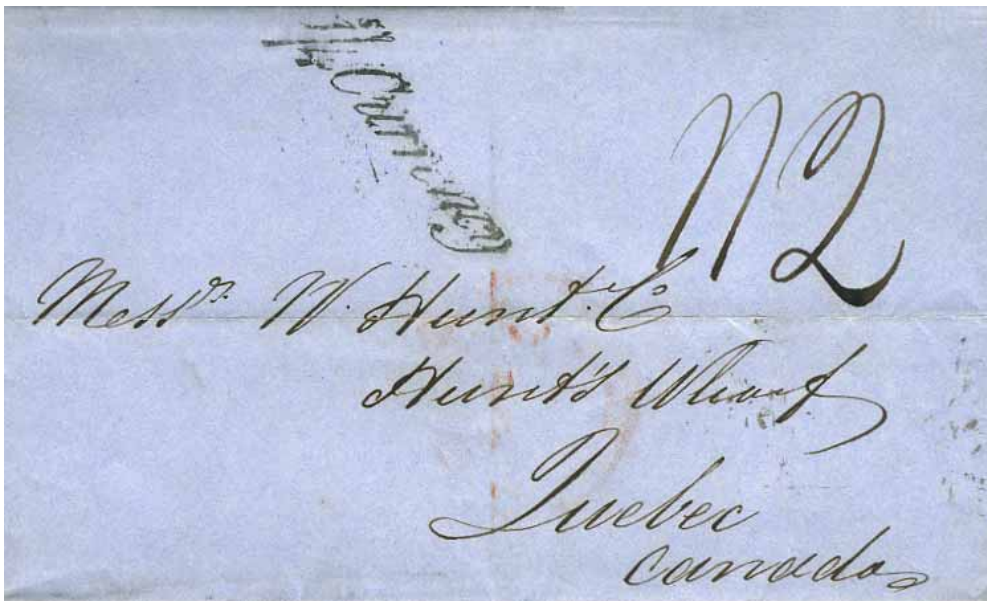 Currency
n2
Messrs. W. Hunt. Co
Hunt's Wharf
Quebec
Canada